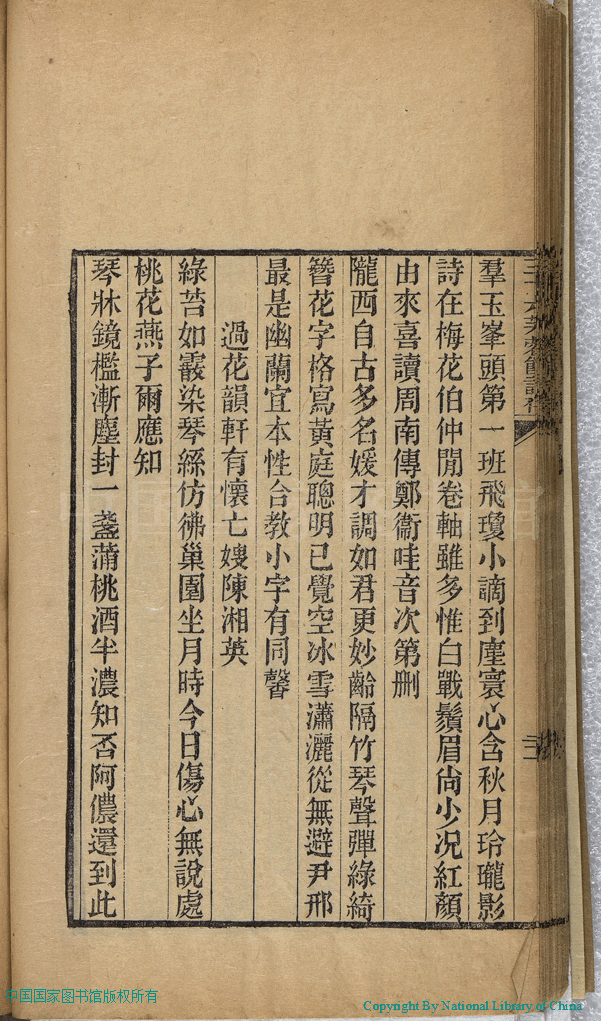 羣玉峯頭第一班飛瓊小謫到塵寰心含秋月玲瓏影
詩在梅花伯仲閒卷軸雖多惟白戰鬚眉尙少况紅顏
由來喜讀周南傳鄭衞哇音次第删
隴西自古多名媛才調如君更妙齡隔竹琴聲彈綠綺
簪花字格寫黃庭聰明已覺空冰雪瀟灑從無避尹邢
最是幽蘭宜本性合教小字有同馨
過花韻軒有懷亡嫂陳湘英
綠苔如霰染琴絲仿彿巢園坐月時今日傷心無說處
桃花燕子爾應知
琴牀鏡檻漸塵封一盞蒲桃酒半濃知否阿儂還到此
中国国家图书馆版权所有
Copyright By National Library of China